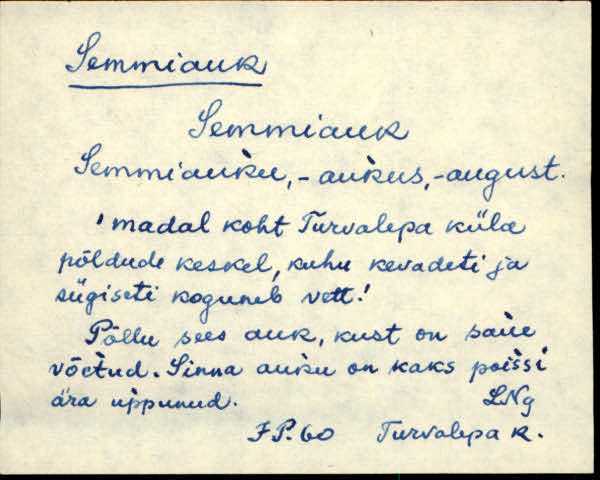 Semmiauk
Semmiauk
Semmiauku, -aukus, -august.
'madal koht Turvalepa küla
põldude keskel, kuhu kevadeti ja
sügiseti koguneb vett!
Põllu sees auk, kust on saue
võetud. Sinna auku on kaks poissi
ära uppunud.
LNg
FP.60 Turvalepa k.